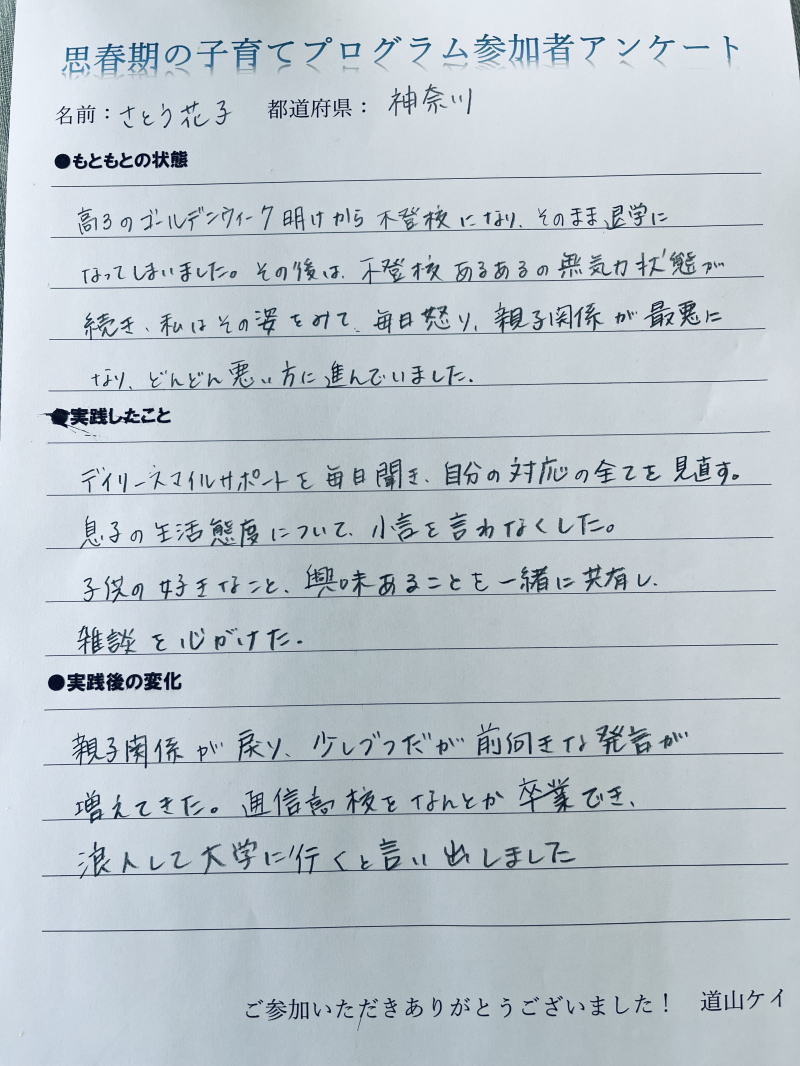 思春期の子育てプログラム参加者アンケート
名前：さとう花子　都道府県：神奈川
●もともとの状態
高3のゴールデンウィーク明けから不登校になり、そのまま退学に
なってしまいました。その後は、不登校あるあるの無気力状態が
続き、私はその姿をみて、毎日怒り、親子関係が最悪に
なり、どんどん悪い方に進んでいました。
●実践したこと
デイリースマイルサポートを毎日聞き、自分の対応の全てを見直す。
息子の生活態度について、小言を言わなくした。
子供の好きなこと、興味あることを一緒に共有し、
雑談を心がけた。
●実践後の変化
親子関係が戻り、少しづつだが前向きな発言が
増えてきた。通信高校をなんとか卒業でき、
浪人して大学に行くと言い出しました
ご参加いただきありがとうございました！　道山ケイ